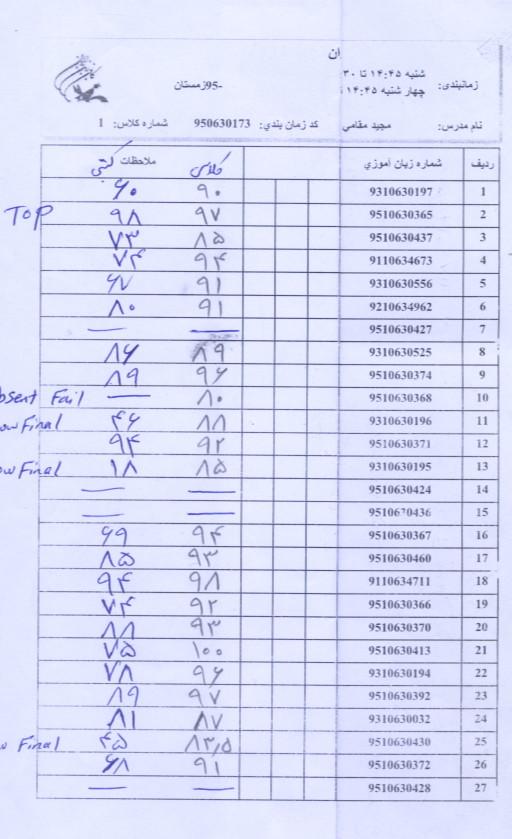 ان
شنبه ۱۴:۴۵ تا ۳۰
زمانبندی: چهار شنبه ۱۴:۴۵
95-زمستان
نام مدرس: مجید مقامی کد زمان بندي: 950630173 شماره کلاس: 1
ردیف شماره زبان آموزي کلاسی ملاحظات کتبی
1 9310630197 ۹۰ ۶۰
2 9510630365 ۹۷ ۹۸ TOP
3 9510630437 ۸۵ ۷۳
4 9110634673 ۹۴ ۷۴
5 9310630556 ۹۱ ۶۷
6 9210634962 ۹۱ ۸۰
7 9510630427 — —
8 9310630525 ۸۹ ۸۶
9 9510630374 ۹۶ ۸۹
10 9510630368 ۸۰ — bsent Fail
11 9310630196 ۸۸ ۴۶ ow Final
12 9510630371 ۹۲ ۹۴
13 9310630195 ۸۵ ۱۸ ow Final
14 9510630424 — —
15 9510630436 — —
16 9510630367 ۹۴ ۶۹
17 9510630460 ۹۳ ۸۵
18 9110634711 ۹۸ ۹۴
19 9510630366 ۹۲ ۷۴
20 9510630370 ۹۳ ۸۸
21 9510630413 ۱۰۰ ۷۵
22 9310630194 ۹۶ ۷۸
23 9510630392 ۹۷ ۸۹
24 9310630032 ۸۷ ۸۱
25 9510630430 ۸۳٫۵ ۴۵ w Final
26 9510630372 ۹۱ ۶۸
27 9510630428 — —